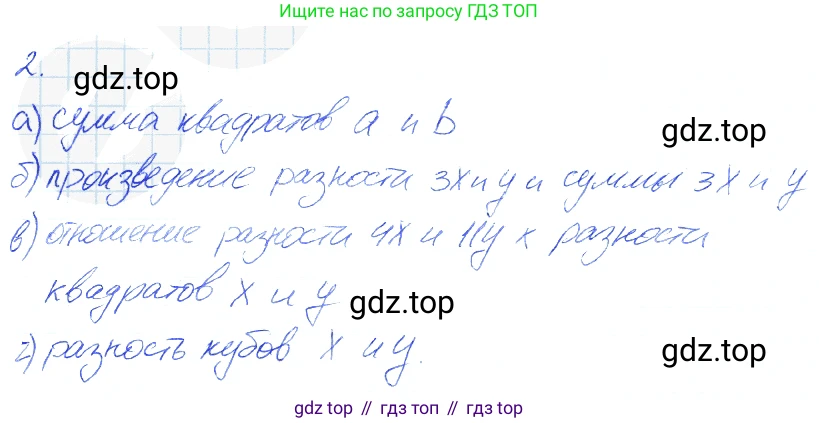 Ищите нас по запросу ГДЗ ТОП
2.
gdz.top
а) сумма квадратов a и b
gdz.top
б) произведение разности 3x и y и суммы 3x и y
в) отношение разности 4x и 11y к разности
квадратов x и y
gdz.top
г) разность кубов x и y.
gdz.top
gdz top // гдз топ // gdz top